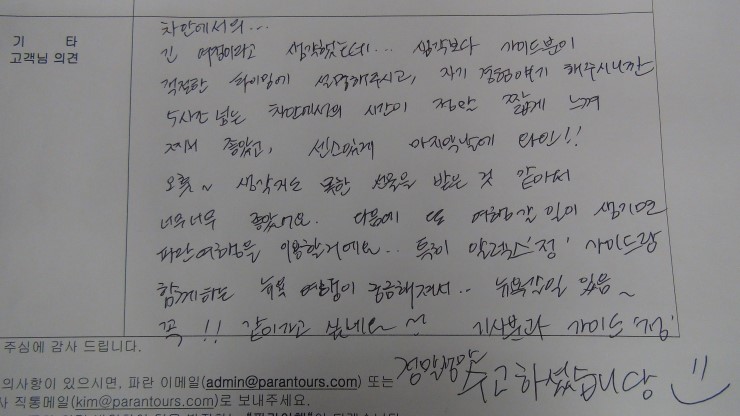 기 타
고객님 의견
차안에서의...
긴 여정이라고 생각했는데... 생각보다 가이드분이
적절한 타이밍에 설명해주시고, 자기 경험이야기 해주시니깐
5시간 넘는 차안에서의 시간이 정말 짧게 느껴
져서 좋았고, 센스있게 마지막날에 와인!!
오홋~ 생각지도 못한 선물을 받은 것 같아서
너무너무 좋았어요. 다음에 또 여행갈 일이 생기면
파란여행을 이용할거에요.. 특히 알렉스'정' 가이드랑
함께하는 뉴욕 여행이 궁금해져서.. 뉴욕갈일 있음~
꼭!! 같이가고 싶네요~^^ 기사분과 가이드'정'
정말정말 수고하셨습니다
주심에 감사 드립니다.
의사항이 있으시면, 파란 이메일(admin@parantours.com) 또는
사 직통메일(kim@parantours.com)로 보내주세요.